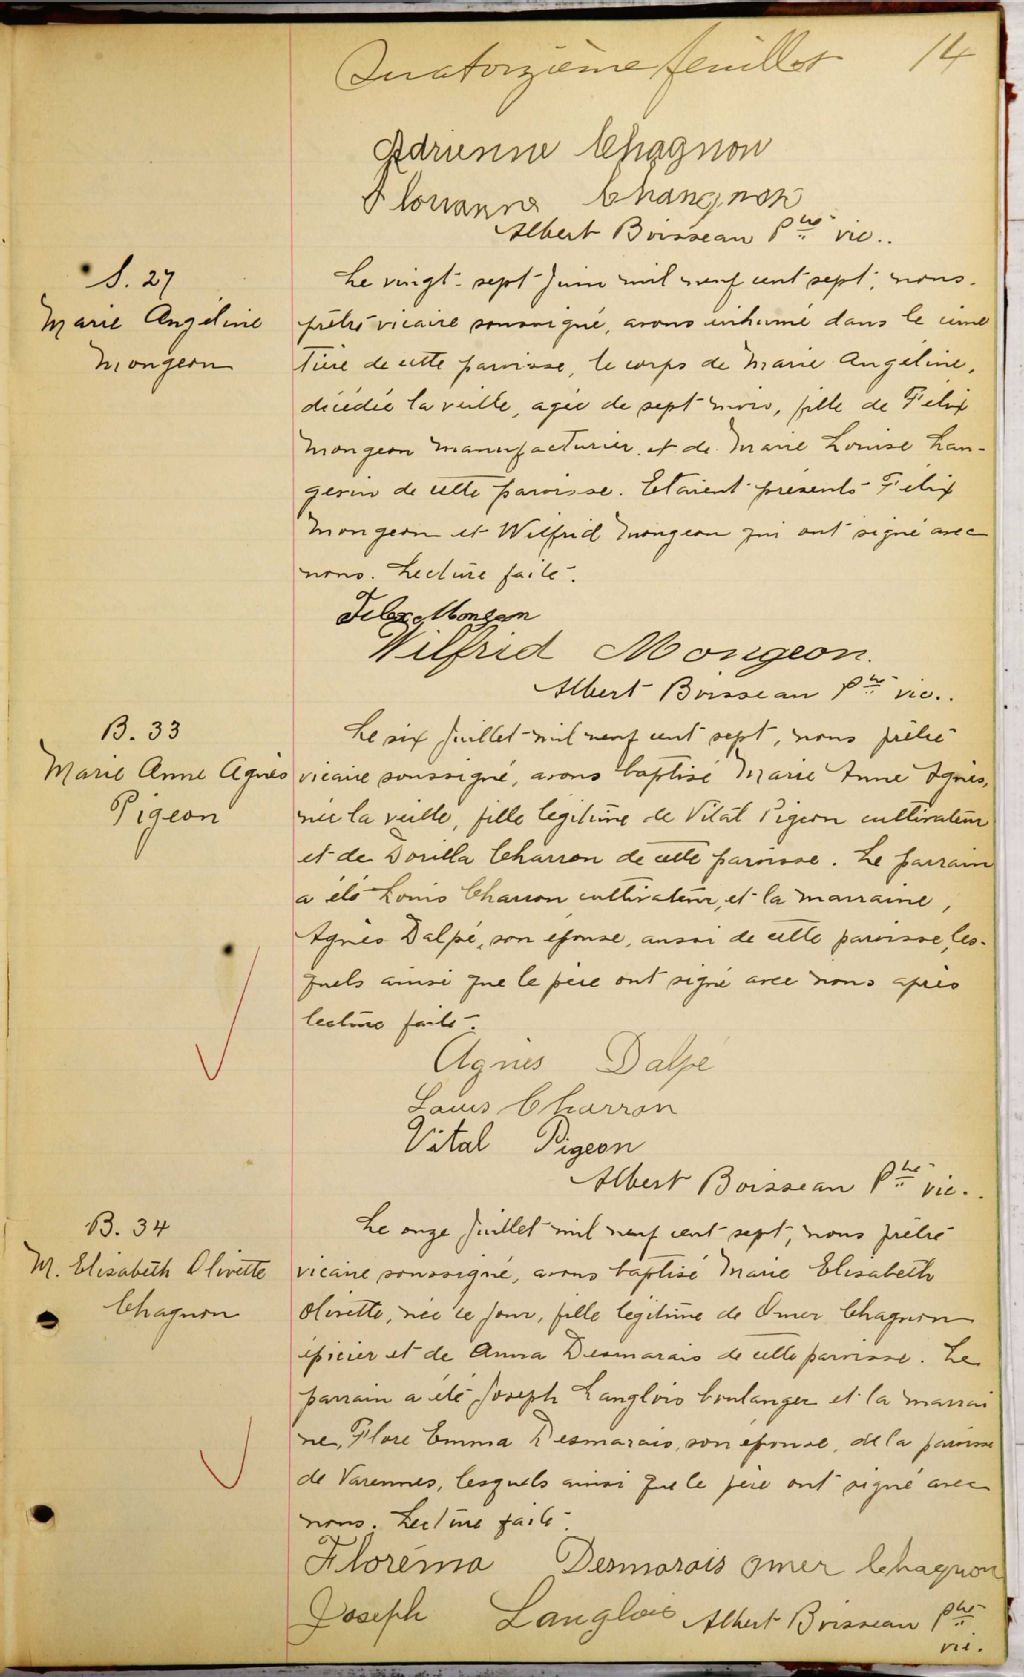 Quatorzième feuillet 14
Adrienne Chagnon
Florianne Changnon
Albert Boisseau Ptre vic..
S. 27
Marie Angéline
Mongeon
Le vingt-sept Juin mil neuf cent sept, nous
prêtre vicaire soussigné, avons inhumé dans le cime
tière de cette paroisse, le corps de Marie Angéline,
décédée la veille, agée de sept mois, fille de Félix
Mongeon manufacturier et de Marie Louise Lan-
gevin de cette paroisse. Etaient présents Félix
Mongeon et Wilfrid Mongeon qui ont signé avec
nous. Lecture faite.
Felix Mongeon
Wilfrid Mongeon.
Albert Boisseau Ptre vic..
B. 33
Marie Anne Agnès
Pigeon
Le six Juillet mil neuf cent sept, nous prêtre
vicaire soussigné, avons baptisé Marie Anne Agnès,
née la veille, fille légitime de Vital Pigeon cultivateur
et de Dorilla Charron de cette paroisse. Le parrain
a été Louis Charron cultivateur, et la marraine,
Agnès Dalpé, son épouse, aussi de cette paroisse, les-
quels ainsi que le père ont signé avec nous après
lecture faite.
Agnes Dalpé
Louis Charron
Vital Pigeon
Albert Boisseau Ptre vic..
B. 34
M. Elisabeth Olivette
Chagnon
Le onze Juillet mil neuf cent sept, nous prêtre
vicaire soussigné, avons baptisé Marie Elisabeth
Olivette, née ce jour, fille légitime de Omer Chagnon
épicier et de Anna Desmarais de cette paroisse. Le
parrain a été Joseph Langlois boulanger et la marrai
ne, Flore Emma Desmarais, son épouse, de la paroisse
de Varennes, lesquels ainsi que le père ont signé avec
nous. Lecture faite.
Floréma Desmarais Omer Chagnon
Joseph Langlois Albert Boisseau Ptre
vic.